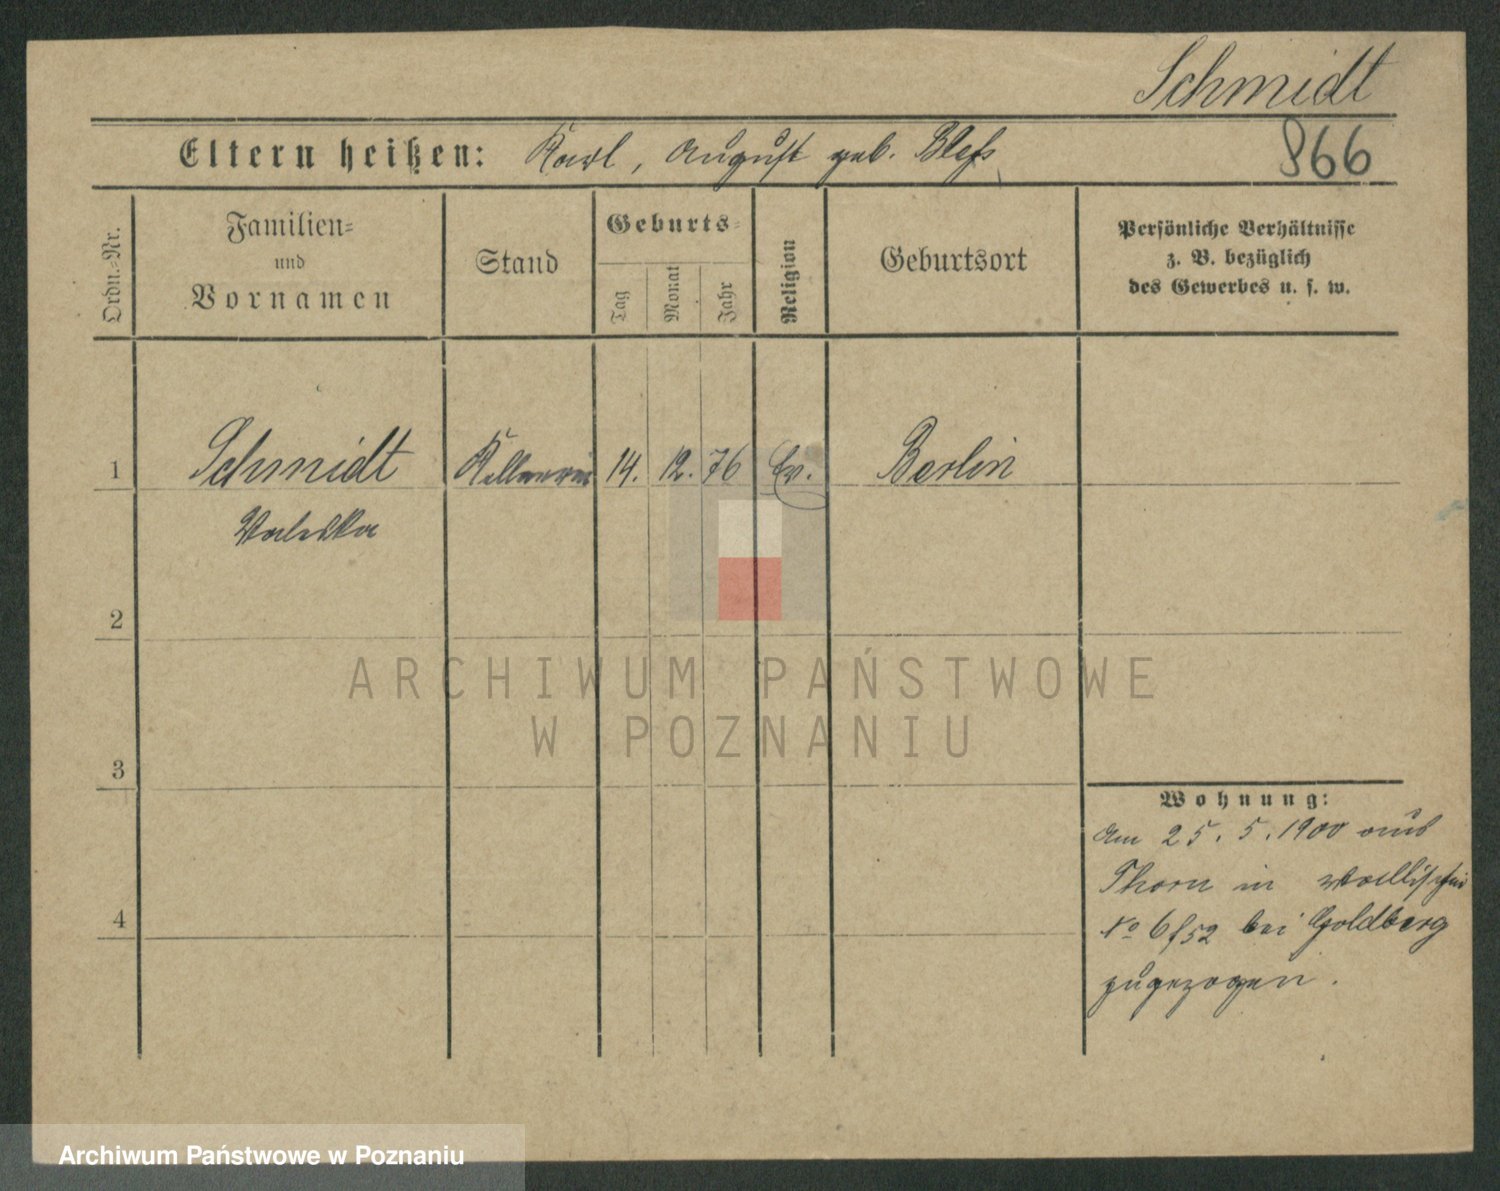 Schmidt
866
Eltern heißen: Karl, August geb. Bless
Ordn.-Nr.
Familien-
und
Vornamen
Stand
Geburts-
Tag
Monat
Jahr
Religion
Geburtsort
Persönliche Verhältnisse
z. B. bezüglich
des Gewerbes u. s. w.
1
Schmidt
Kellnerin
14. 12. 76
Ev.
Berlin
Valeska
2
ARCHIWUM PAŃSTWOWE
W POZNANIU
3
Wohnung:
Am 25. 5. 1900 aus
Thorn in Wallischei
No 6/52 bei Goldberg
zugezogen.
4
Archiwum Państwowe w Poznaniu